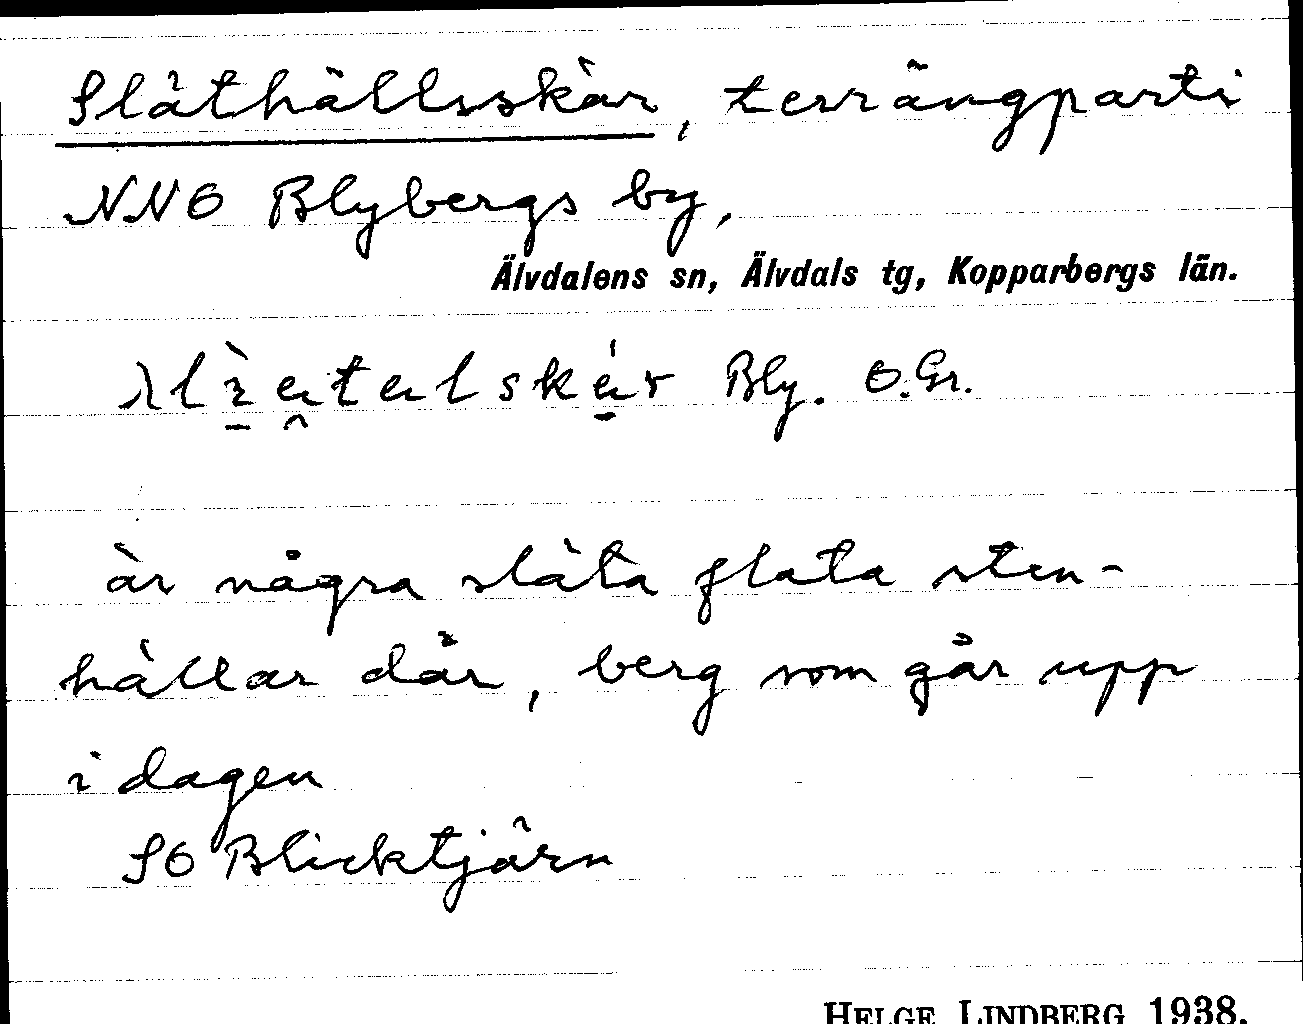 Släthällsskär, terrängparti
NNO Blybergs by,
Älvdalens sn, Älvdals tg, Kopparbergs län.
Bly. O. Gr.
är några släta flata sten-
hällar där, berg som går upp
i dagen
SO Blicktjärn
HELGE LINDBERG 1938.